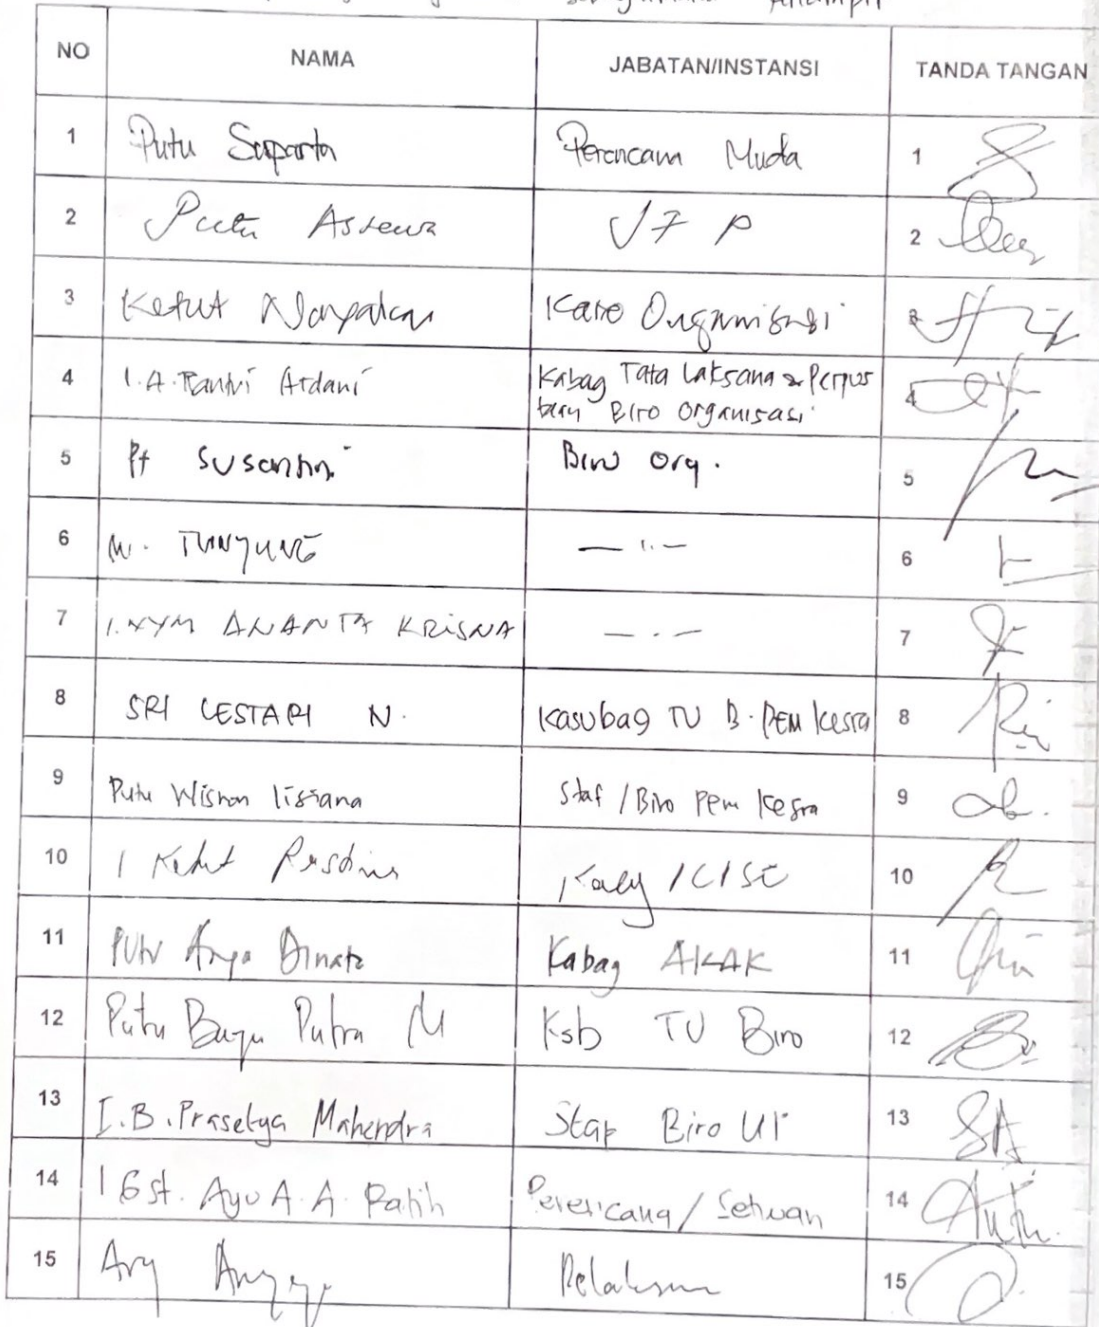 NO NAMA JABATAN/INSTANSI TANDA TANGAN
1 Putu Suparta Perencana Muda 1
2 Putu Astawa JF P 2
3 Ketut Nayaka Karo Organisasi 3
4 I.A. Rantri Ardani Kabag Tata Laksana & Perpus 4
Biro Organisasi
5 Pt Susantini Biro Org. 5
6 W. TUNJUNG — '' — 6
7 I. NYM ANANTA KRISNA — '' — 7
8 SRI LESTARI N. Kasubag TU B. PEM Kesra 8
9 Putu Wisnon Staf / Biro Pem Kesra 9
10 I Ketut 10
11 Putu Arya Dinata Kabag AKAK 11
12 Putu Bayu Putra M Ksb TU Biro 12
13 I.B. Prasetya Mahendra Stap Biro UP 13
14 I Gst. Ayu A.A. Ratih Perencana / Setwan 14
15 Ary Pelaksana 15